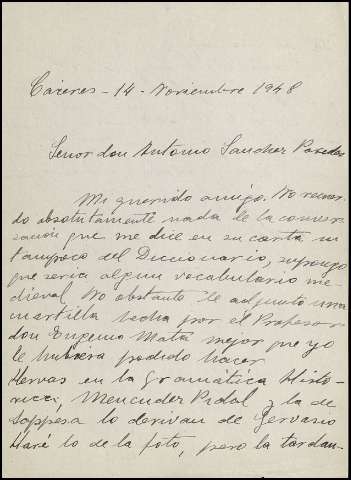 Cáceres - 14 - Noviembre 1948
Señor don Antonio Sanchez Paredes
Mi querido amigo. No recuer-
do absolutamente nada de la conver-
sación que me dice en su carta ni
tampoco del Diccionario, supongo
que seria algun vocabulario me-
dieval. No obstante le adjunto una
cuartilla hecha por el Profesor
don Eugenio Mata mejor que yo
le hubiera podido hacer
Hervas en la Gramática Histo-
rica, Menendez Pidal y la de
lo derivan de Gervasio
Haré lo de la foto, pero la tardan-